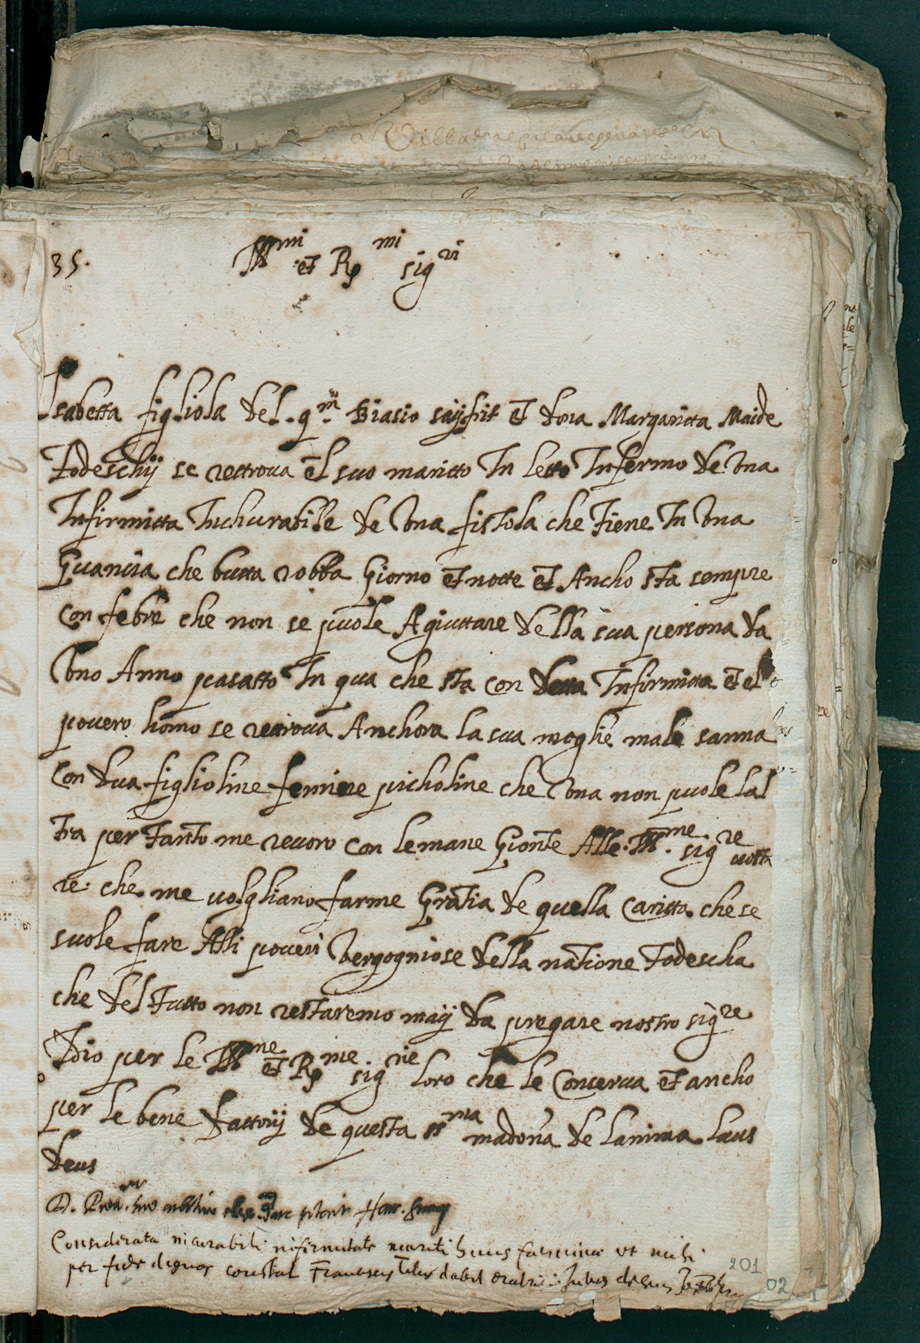 35.
Ill.mi et R.mi sig.ri
Isabetta figliola del q.m Biasio sayfrit et dona Margaritta Maide
Todeschij se rettrova el suo maritto In letto Infermo de Una
Infirmitta Inchurabile de Una fistola che Tiene In Una
Guancia che butta robba Giorno et notte et Ancho sta sempre
con febre che non se puole Agiuttare della sua persona da
Uno Anno pasatto In qua che sta con detta Infirmitta et el
povero homo se retrova Anchora la sua moghe male sanna
con dua figlioline femine picholine che Una non puole lal
tra per Tanto me recoro con le mane Gionte Alle Ill.me sig.re vostt
re che me volgliano farme Gratia de quella Caritta che se
suole fare Alli poveri Vergogniose della natione Todescha
che del Tutto non restaremo maij da pregare nostro sig.re
Dio per le Ill.me et R.me sig.rie loro che le Conserva et ancho
per le bene fattorij de questa ss.ma madona de lanima laus
deus
Considerata incurabili infirmitate mariti huius feminae ut mihi
per fide dignos constat Franciscus
201
02